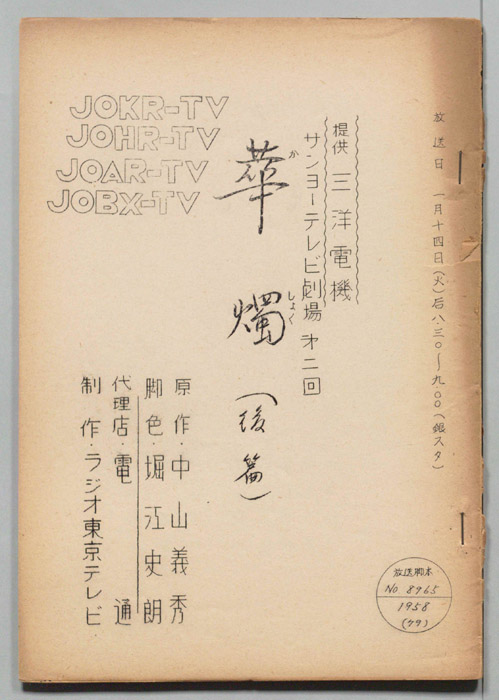 放送日 一月十四日(火)后八・三〇〜九・〇〇(銀スタ)
提供 三洋電機
サンヨーテレビ劇場 第二回
華燭(後篇)
か
しょく
JOKR-TV
JOHR-TV
JOAR-TV
JOBX-TV
原作・中山義秀
脚色・堀江史朗
代理店・電通
制作・ラジオ東京テレビ
放送脚本
No 8965
1958